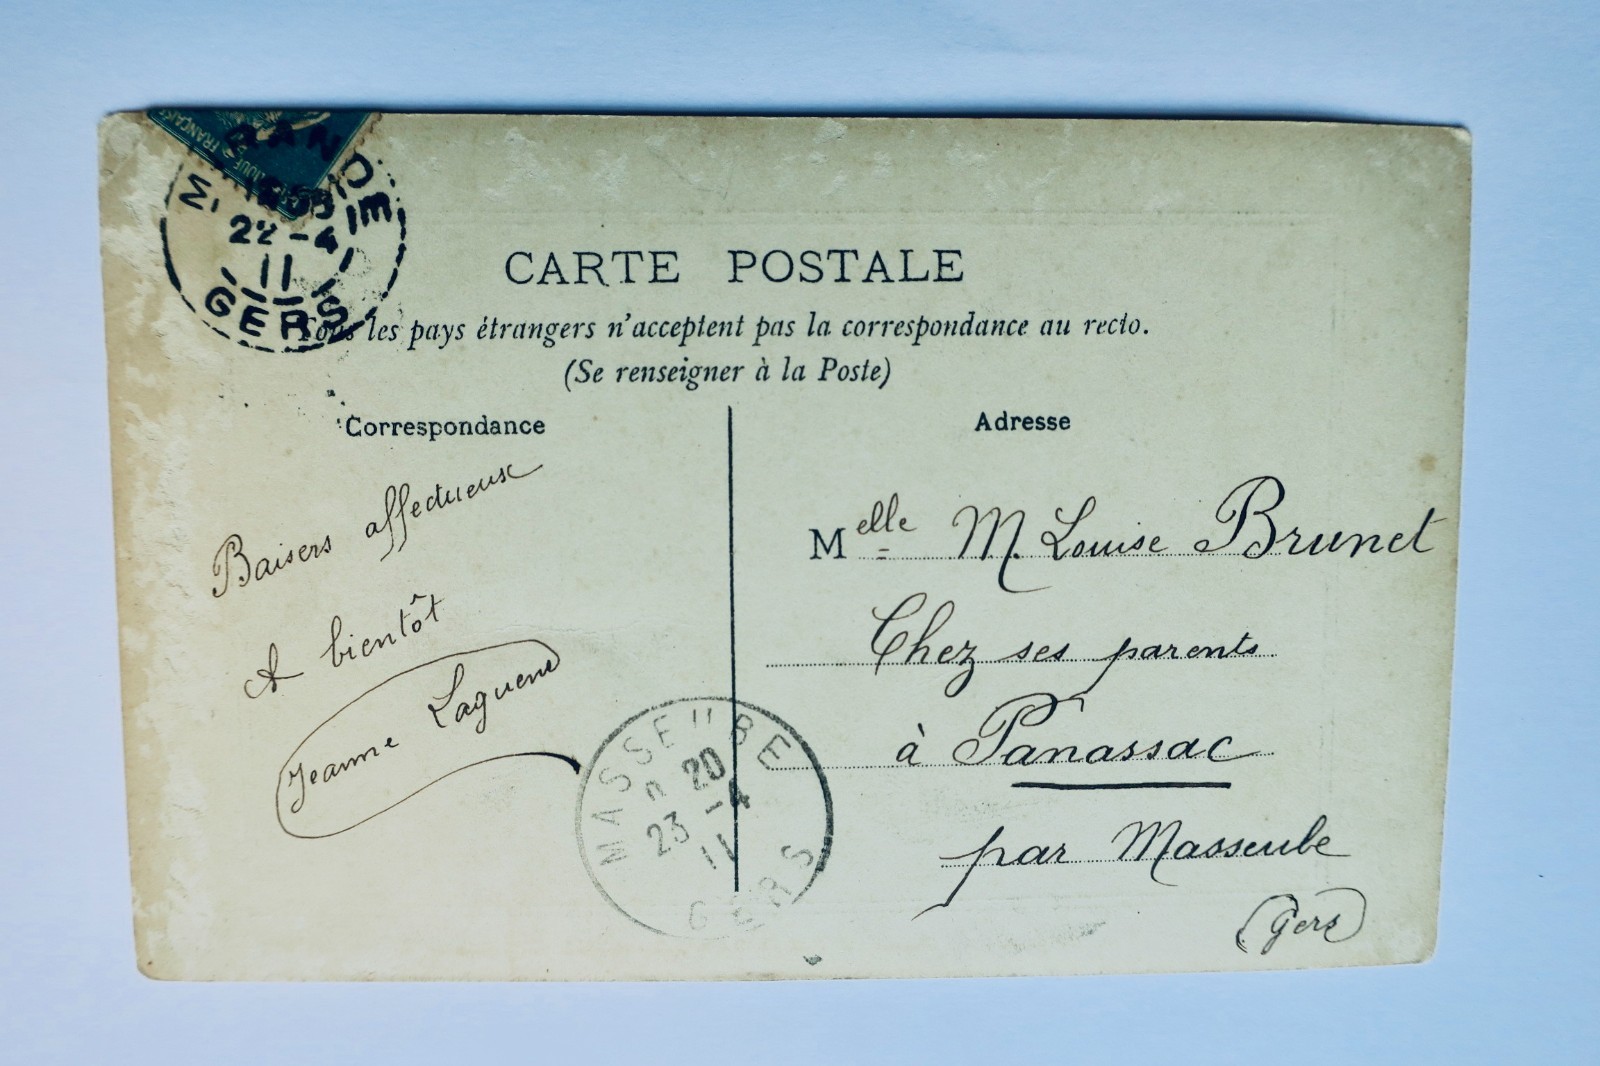 MIRANDE
22 -4
11
GERS
FRANÇAISE
CARTE POSTALE
Tous les pays étrangers n'acceptent pas la correspondance au recto.
(Se renseigner à la Poste)
Correspondance
Baisers affectueux
A bientôt
Jeanne
Adresse
Melle M. Louise Brunet
Chez ses parents
à Panassac
par Masseube
(Gers)
MASSEUBE
20
23 -4
11
GERS